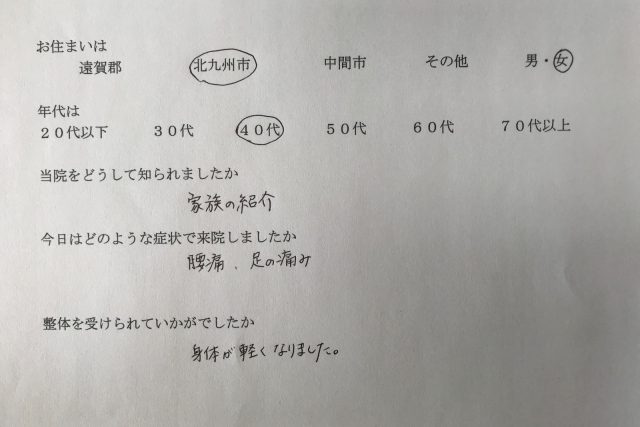 お住まいは
遠賀郡 北九州市 中間市 その他 男・女
年代は
20代以下 30代 40代 50代 60代 70代以上
当院をどうして知られましたか
家族の紹介
今日はどのような症状で来院しましたか
腰痛、足の痛み
整体を受けられていかがでしたか
身体が軽くなりました。